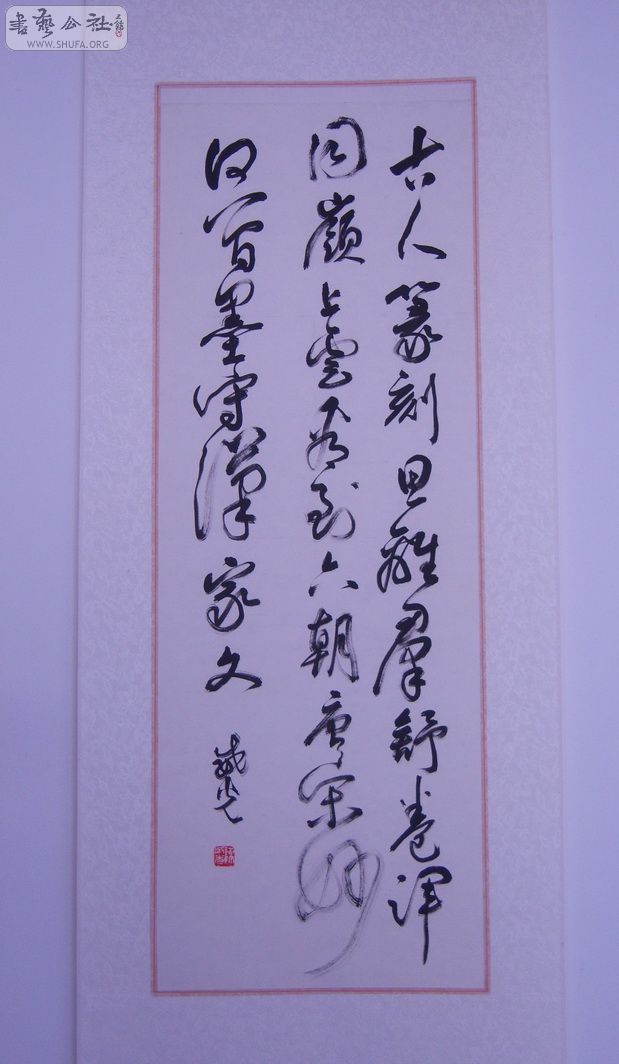 書藝公社
WWW.SHUFA.ORG
古人篆刻思離羣舒卷渾
同嶺上雲看到六朝唐宋妙
何曾墨守漢家文